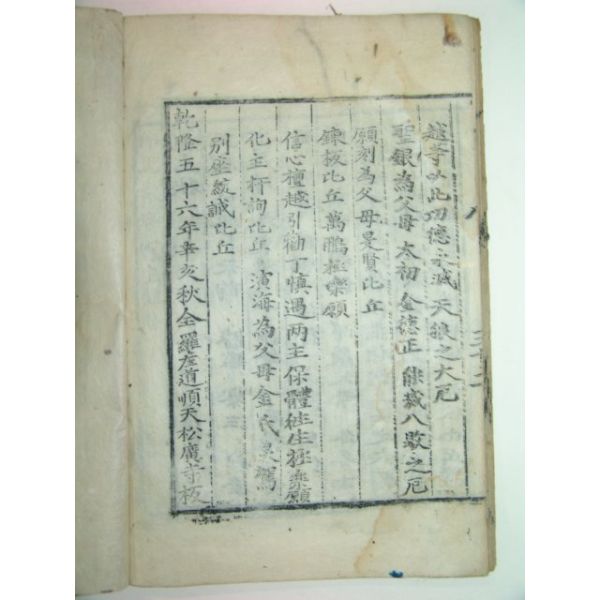 越等以此功德永滅天狼之大厄
聖銀為父母 太初 金德正 能滅八敗之厄
願刻為父母是賢比丘
鍊板比丘萬鵬極樂願
信心檀越引勸丁愼遇两主保體徃生極樂願
化主軒詢比丘 演海為父母金氏 駕
別座誠比丘
乾隆五十六年辛亥秋全羅左道順天松廣寺板